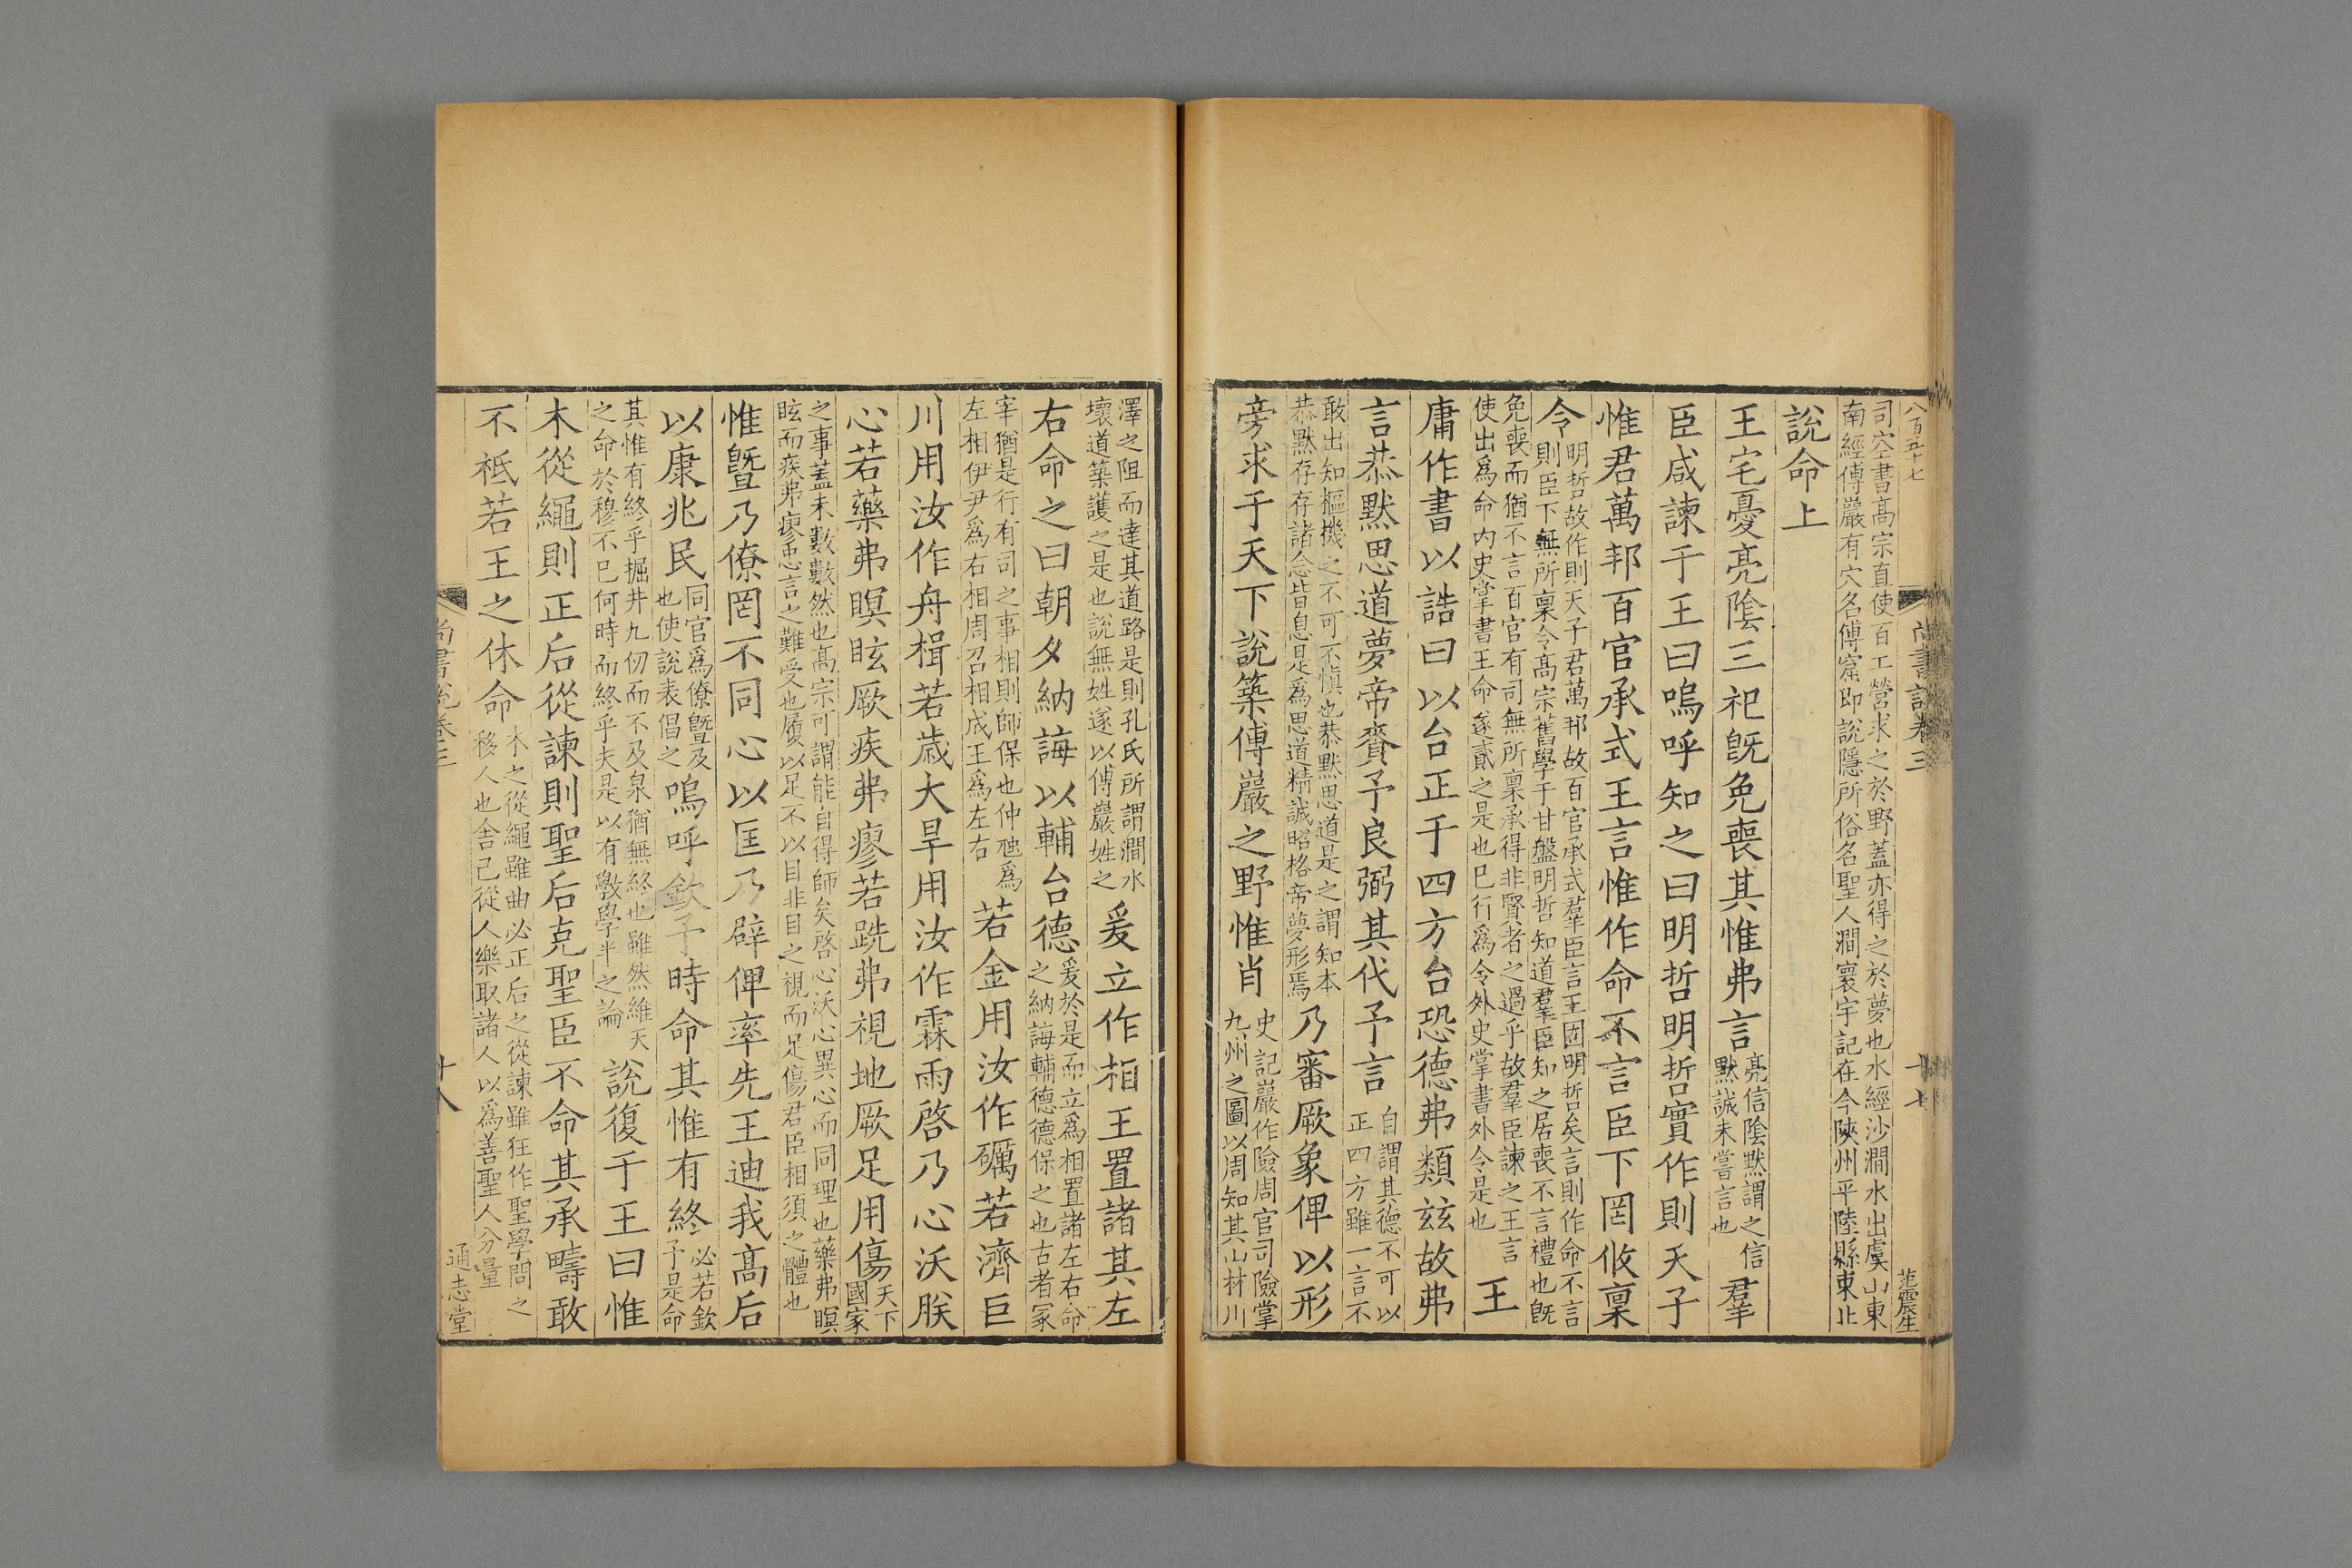 八百五十七
尚書説卷三
十七
范震生
司空書高宗直使百工營求之於野蓋亦得之於夢也水經沙澗水出虞山東
南經傅巖有穴名傅窟即説隱所俗名聖人澗寰宇記在今陝州平陸縣東北
說命上
王宅憂亮陰三祀旣免喪其惟弗言
亮信陰默謂之信
默誠未嘗言也
羣
臣咸諫于王曰嗚呼知之曰明哲明哲實作則天子
惟君萬邦百官承式王言惟作命不言臣下罔攸稟
令
明哲故作則天子君萬邦故百官承式羣臣言王固明哲矣言則作命不言
則臣下無所稟令高宗舊學于甘盤明哲知道羣臣知之居喪不言禮也旣
免喪而猶不言百官有司無所稟承得非賢者之過乎故羣臣諫之王言
使出爲命內史掌書王命遂貳之是也已行爲令外史掌書外令是也
王
庸作書以誥曰以台正于四方台恐德弗類玆故弗
言恭默思道夢帝賚予良弼其代予言
自謂其德不可以
正四方雖一言不
敢出知樞機之不可不慎也恭默思道是之謂知本
恭默存存諸念皆息是爲思道精誠昭格帝夢形焉
乃審厥象俾以形
旁求于天下說築傅巖之野惟肖
史記巖作險周官司險掌
九州之圖以周知其山林川
澤之阻而達其道路是則孔氏所謂澗水
壞道築護之是也說無姓遂以傅巖姓之
爰立作相王置諸其左
右命之曰朝夕納誨以輔台德
爰於是而立爲相置諸左右命
之納誨輔德德保之也古者冢
宰猶是行有司之事相則師保也仲虺爲
左相伊尹爲右相周召相成王爲左右
若金用汝作礪若濟巨
川用汝作舟楫若歲大旱用汝作霖雨啓乃心沃朕
心若藥弗瞑眩厥疾弗瘳若跣弗視地厥足用傷
天下
國家
之事蓋未數數然也高宗可謂能自得師矣啓心沃心異心而同理也藥弗瞑
眩而疾弗瘳忠言之難受也履以足不以目非目之視而足傷君臣相須之體也
惟曁乃僚罔不同心以匡乃辟俾率先王迪我高后
以康兆民
同官爲僚曁及
也使說表倡之
嗚呼欽予時命其惟有終
必若欽
予是命
其惟有終乎掘井九仞而不及泉猶無終也雖然維天
之命於穆不已何時而終乎夫是以有斆學半之論
說復于王曰惟
木從繩則正后從諫則聖后克聖臣不命其承疇敢
不祗若王之休命
木之從繩雖曲必正后之從諫雖狂作聖學問之
移人也舍己從人樂取諸人以爲善聖人分量
尚書説卷三
十八
通志堂